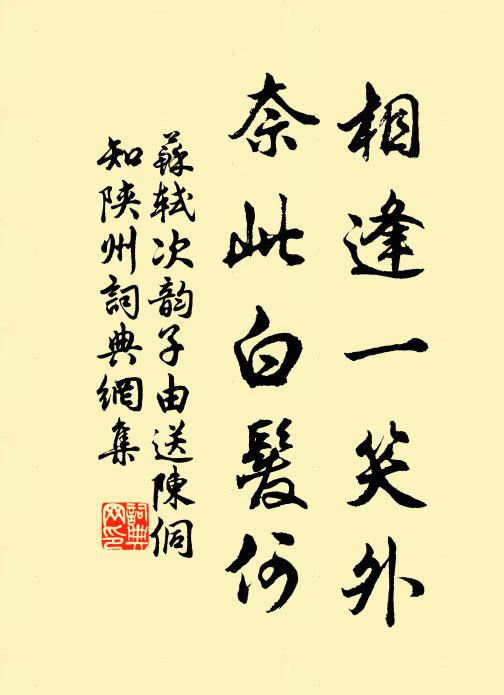 相逢一笑外
奈此白髮何
蘇軾次韵子由送陳侗
知陝州詞典網集
詞典网印